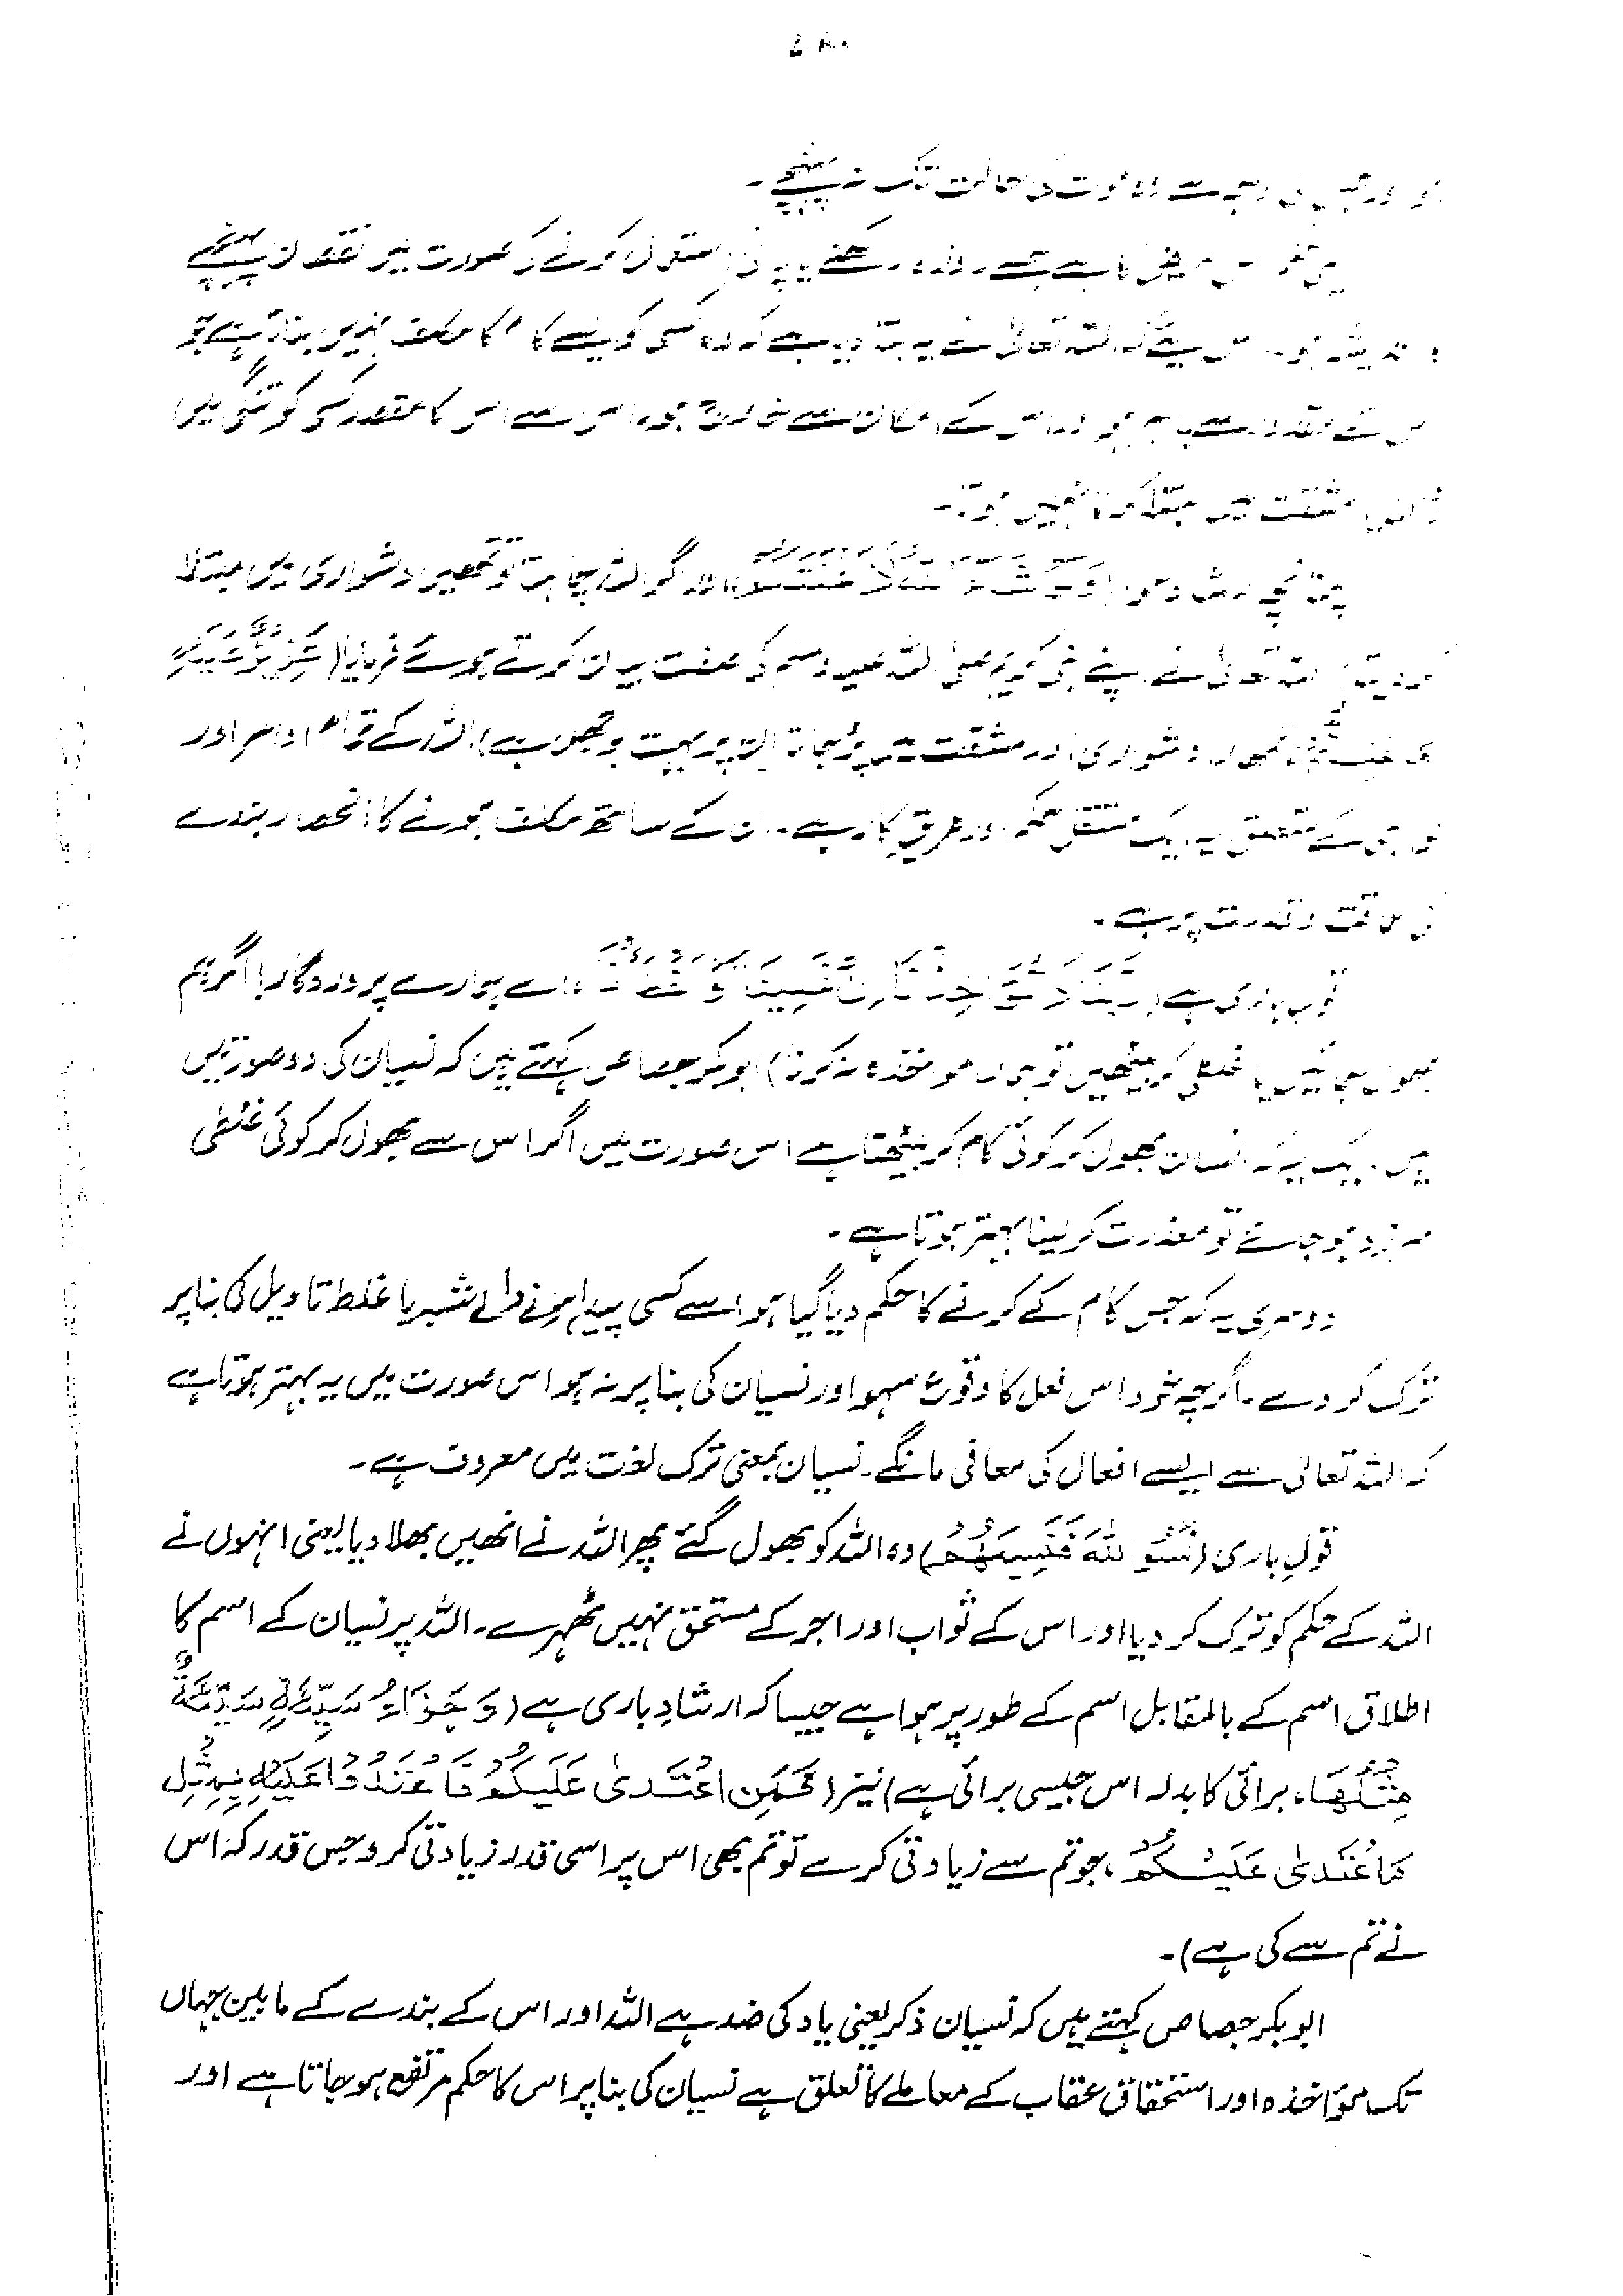 ۷۸۰
ہو اور جس کی وجہ سے وہ موت کی حالت تک نہ پہنچے۔
یہی حکم اس مریض کا ہے جسے روزہ رکھنے یا پانی استعمال کرنے کی صورت میں نقصان پہنچنے
کا اندیشہ ہو۔ اس لیے کہ اللہ تعالیٰ نے یہ بتا دیا ہے کہ وہ کسی کو ایسے کام کا مکلف نہیں بناتا ہے جو
اس کے مقدور سے باہر ہو اور اس کے امکان سے خارج ہو، اس سے اس کا مقصد کسی کو تنگی میں
ڈالنا یا مشقت میں مبتلا کرنا نہیں ہوتا۔
چنانچہ ارشاد ہوا (اور اگر اللہ چاہتا تو تمھیں دشواری میں مبتلا
کر دیتا) اللہ تعالیٰ نے اپنے نبی کریم صلی اللہ علیہ وسلم کی صفت بیان کرتے ہوئے فرمایا (عَزِیْزٌ عَلَیْہِ
تمھارا دشواری اور مشقت میں پڑ جانا ان پر بہت بوجھل ہے) اللہ کے تمام اوامر اور
نواہی کے متعلق یہ ایک مستقل حکم اور طریق کار ہے۔ ان کے ساتھ مکلف ہونے کا انحصار بندے
کی طاقت و قدرت پر ہے۔
قول باری ہے (رَبَّنَا لَا تُؤَاخِذْنَا اِنْ نَّسِیْنَا اَوْ اَخْطَاْنَا۔ اے ہمارے پروردگار! اگر ہم
بھول جائیں یا غلطی کر بیٹھیں تو ہمارا مواخذہ نہ کرنا) ابوبکر جصاص کہتے ہیں کہ نسیان کی دو صورتیں
ہیں۔ ایک یہ کہ انسان بھول کر کوئی کام کر بیٹھتا ہے اس صورت میں اگر اس سے بھول کر کوئی غلطی
سرزد ہو جائے تو معذرت کر لینا بہتر ہوتا ہے۔
دوسری یہ کہ جس کام کے کرنے کا حکم دیا گیا ہو اسے کسی پیدا ہونے والے شبہ یا غلط تاویل کی بنا پر
ترک کر دے۔ اگرچہ خود اس فعل کا وقوع سہو اور نسیان کی بنا پر نہ ہو اس صورت میں یہ بہتر ہوتا ہے
کہ اللہ تعالیٰ سے ایسے افعال کی معافی مانگے۔ نسیان بمعنی ترک لغت میں معروف ہے۔
قولِ باری (نَسُوا اللّٰہَ فَنَسِیَھُمْ) وہ اللہ کو بھول گئے پھر اللہ نے انھیں بھلا دیا یعنی انہوں نے
اللہ کے حکم کو ترک کر دیا اور اس کے ثواب اور اجر کے مستحق نہیں ٹھہرے۔ اللہ پر نسیان کے اسم کا
اطلاق اسم کے بالمقابل اسم کے طور پر ہوا ہے جیسا کہ ارشادِ باری ہے (وَجَزَاءُ سَیِّئَۃٍ سَیِّئَۃٌ
مِّثْلُھَا، برائی کا بدلہ اس جیسی برائی ہے) نیز (فَمَنِ اعْتَدیٰ عَلَیْکُمْ فَاعْتَدُوْا عَلَیْہِ بِمِثْلِ
مَا اعْتَدیٰ عَلَیْکُمْ، جو تم سے زیادتی کرے تو تم بھی اس پر اسی قدر زیادتی کرو جس قدر کہ اس
نے تم سے کی ہے)۔
ابوبکر جصاص کہتے ہیں کہ نسیان ذکر یعنی یاد کی ضد ہے اللہ اور اس کے بندے کے مابین جہاں
تک مؤاخذہ اور استحقاق عقاب کے معاملے کا تعلق ہے نسیان کی بنا پر اس کا حکم مرتفع ہو جاتا ہے اور